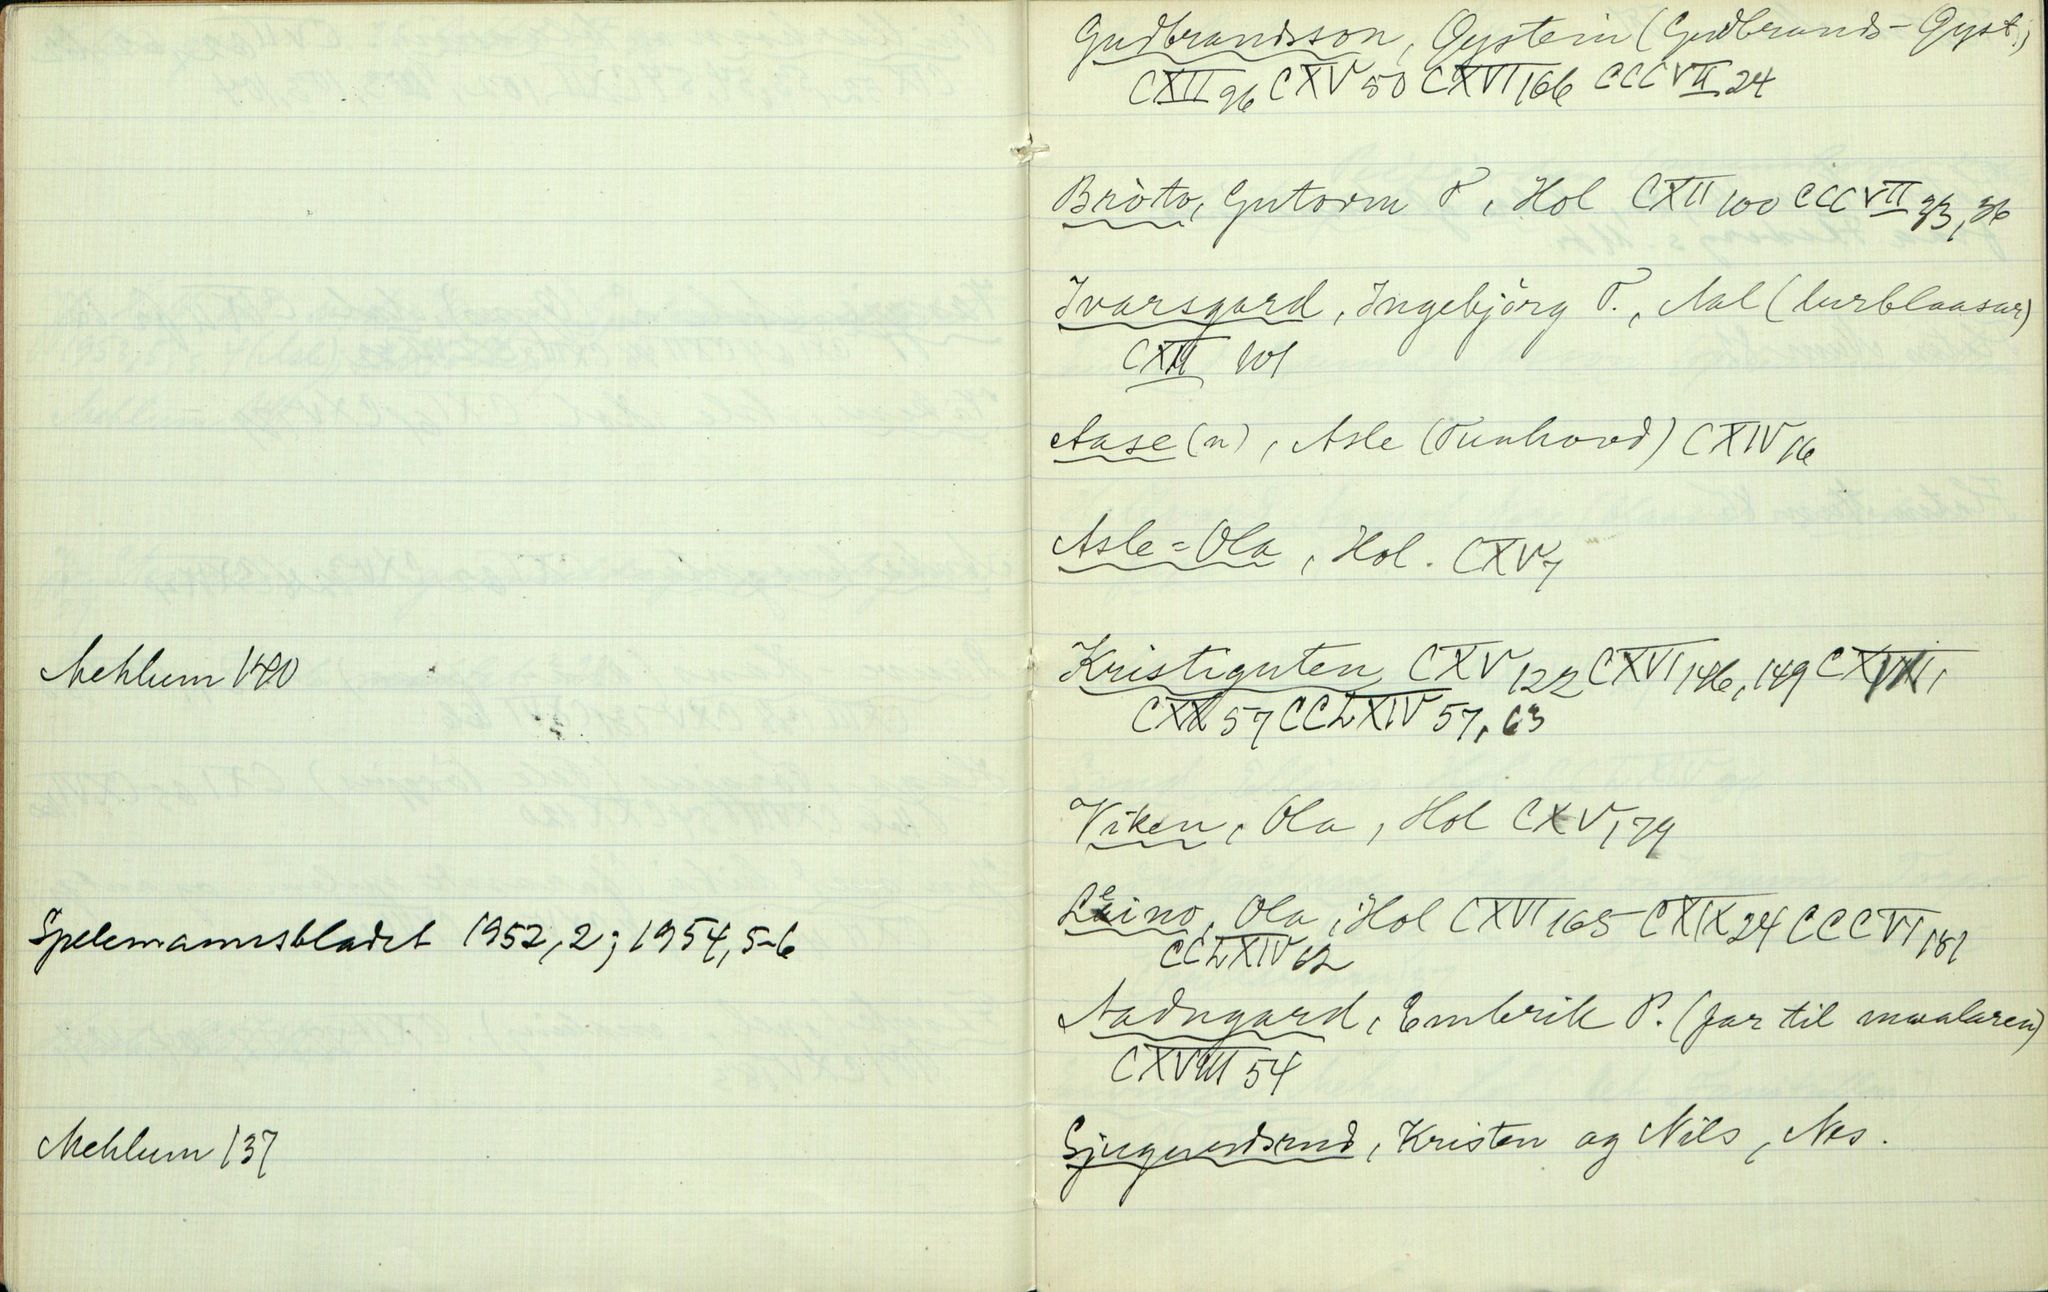 Mehlum 140
Spelemannsbladet 1952, 2; 1954, 5-6
Mehlum 137
Gudbrandsson, Øystein (Gudbrands-Øyst.)
CXII 96 CXV 50 CXVI 166 CCCVII 24
Bròto, Gutorm T., Hol CXII 100 CCCVII 33, 36
Ivarsgard, Ingebjörg T., Aal (lurblaasar)
CXII 101
Aase(n), Asle (Tunhovd) CXIV 16
Asle-Ola, Hol. CXV 7
Kristiguten CXV 122 CXVI 146, 149
CXX 57 CCLXIV 57, 63
Viken, Ola, Hol CXV 179
Leino, Ola, Hol CXVI 165 CXIX 24 CCCVI 181
CCLXIV 62
Aadngard, Embrik P. (far til maalaren)
CXVIII 54
Sjugurdsrud, Kristen og Nils, Nes.